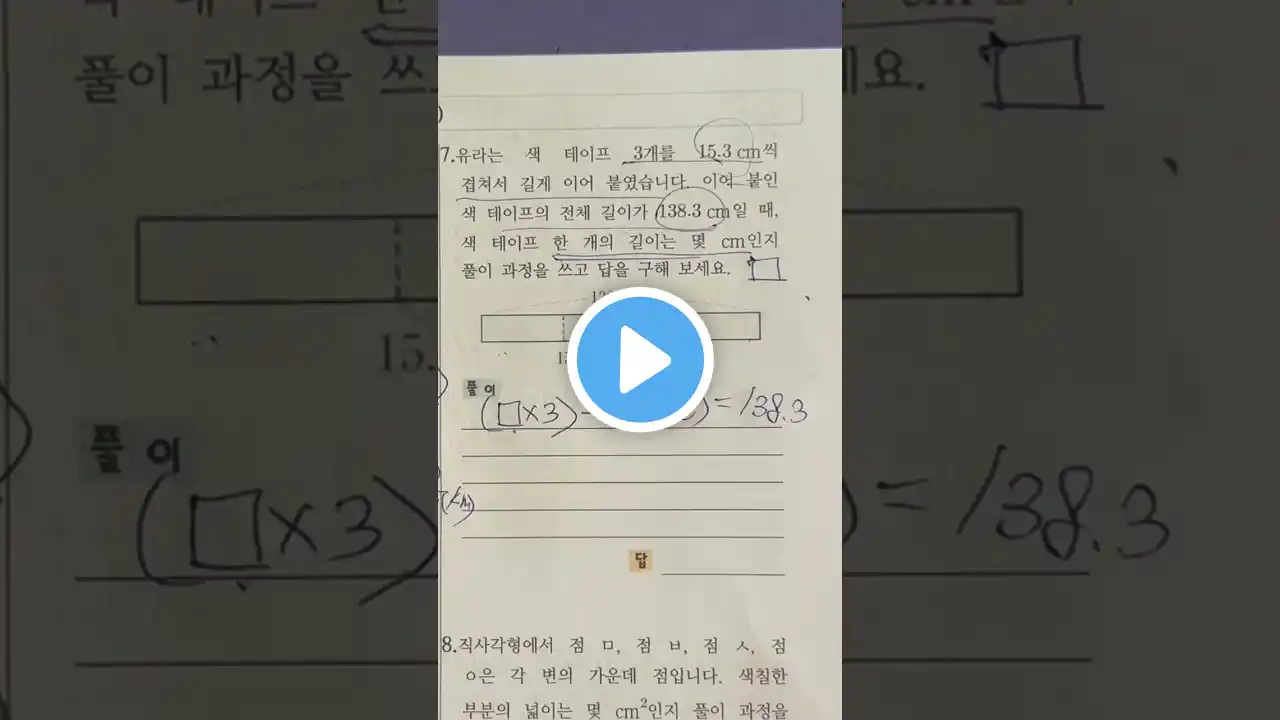 풀이 과정을 쓰
세요.
7.유라는 색 테이프 3개를 15.3 cm씩
겹쳐서 길게 이어 붙였습니다. 이어 붙인
색 테이프의 전체 길이가 138.3 cm일 때,
색 테이프 한 개의 길이는 몇 cm인지
풀이 과정을 쓰고 답을 구해 보세요. □
15.
풀이
(□×3)
) = 138.3
풀이
(□×3)-
) = 138.3
답
8.직사각형에서 점 ㅁ, 점 ㅂ, 점 ㅅ, 점
ㅇ은 각 변의 가운데 점입니다. 색칠한
부분의 넓이는 몇 cm²인지 풀이 과정을